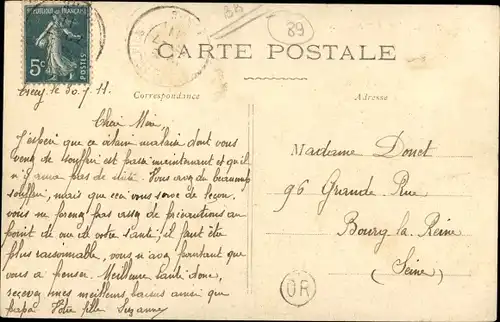 38
89
REPUBLIQUE FRANÇAISE
5c
POSTES
CARTE POSTALE
Crecy le 30.7.11.
Correspondance
Adresse
J'espère que ce vilain malaise dont vous
venez de souffrir est passé maintenant et qu'il
n'y aura pas de suite. Vous avez du beaucoup
souffrir, mais que cela vous serve de leçon,
vous ne prenez pas assez de précautions au
point de vue de votre santé; il faut être
plus raisonnable, vous n'avez pourtant que
vous à penser. Meilleure santé donc,
recevez mes meilleurs baisers ainsi que
papa Votre fille Suzanne
Madame Donet
96 Grande Rue
Bourg la Reine
(Seine)
OR